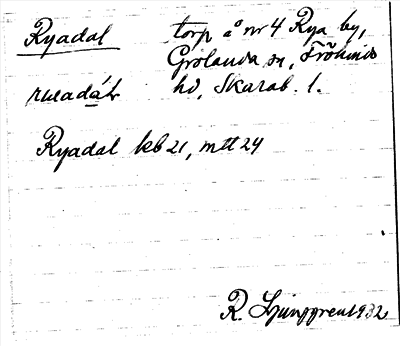 Ryadal torp å nr 4 Rya by,
Grolanda sn, Frökinds
hd, Skarab. l.
Ryadal kb 21, mtl 24
R. Ljunggren 1932